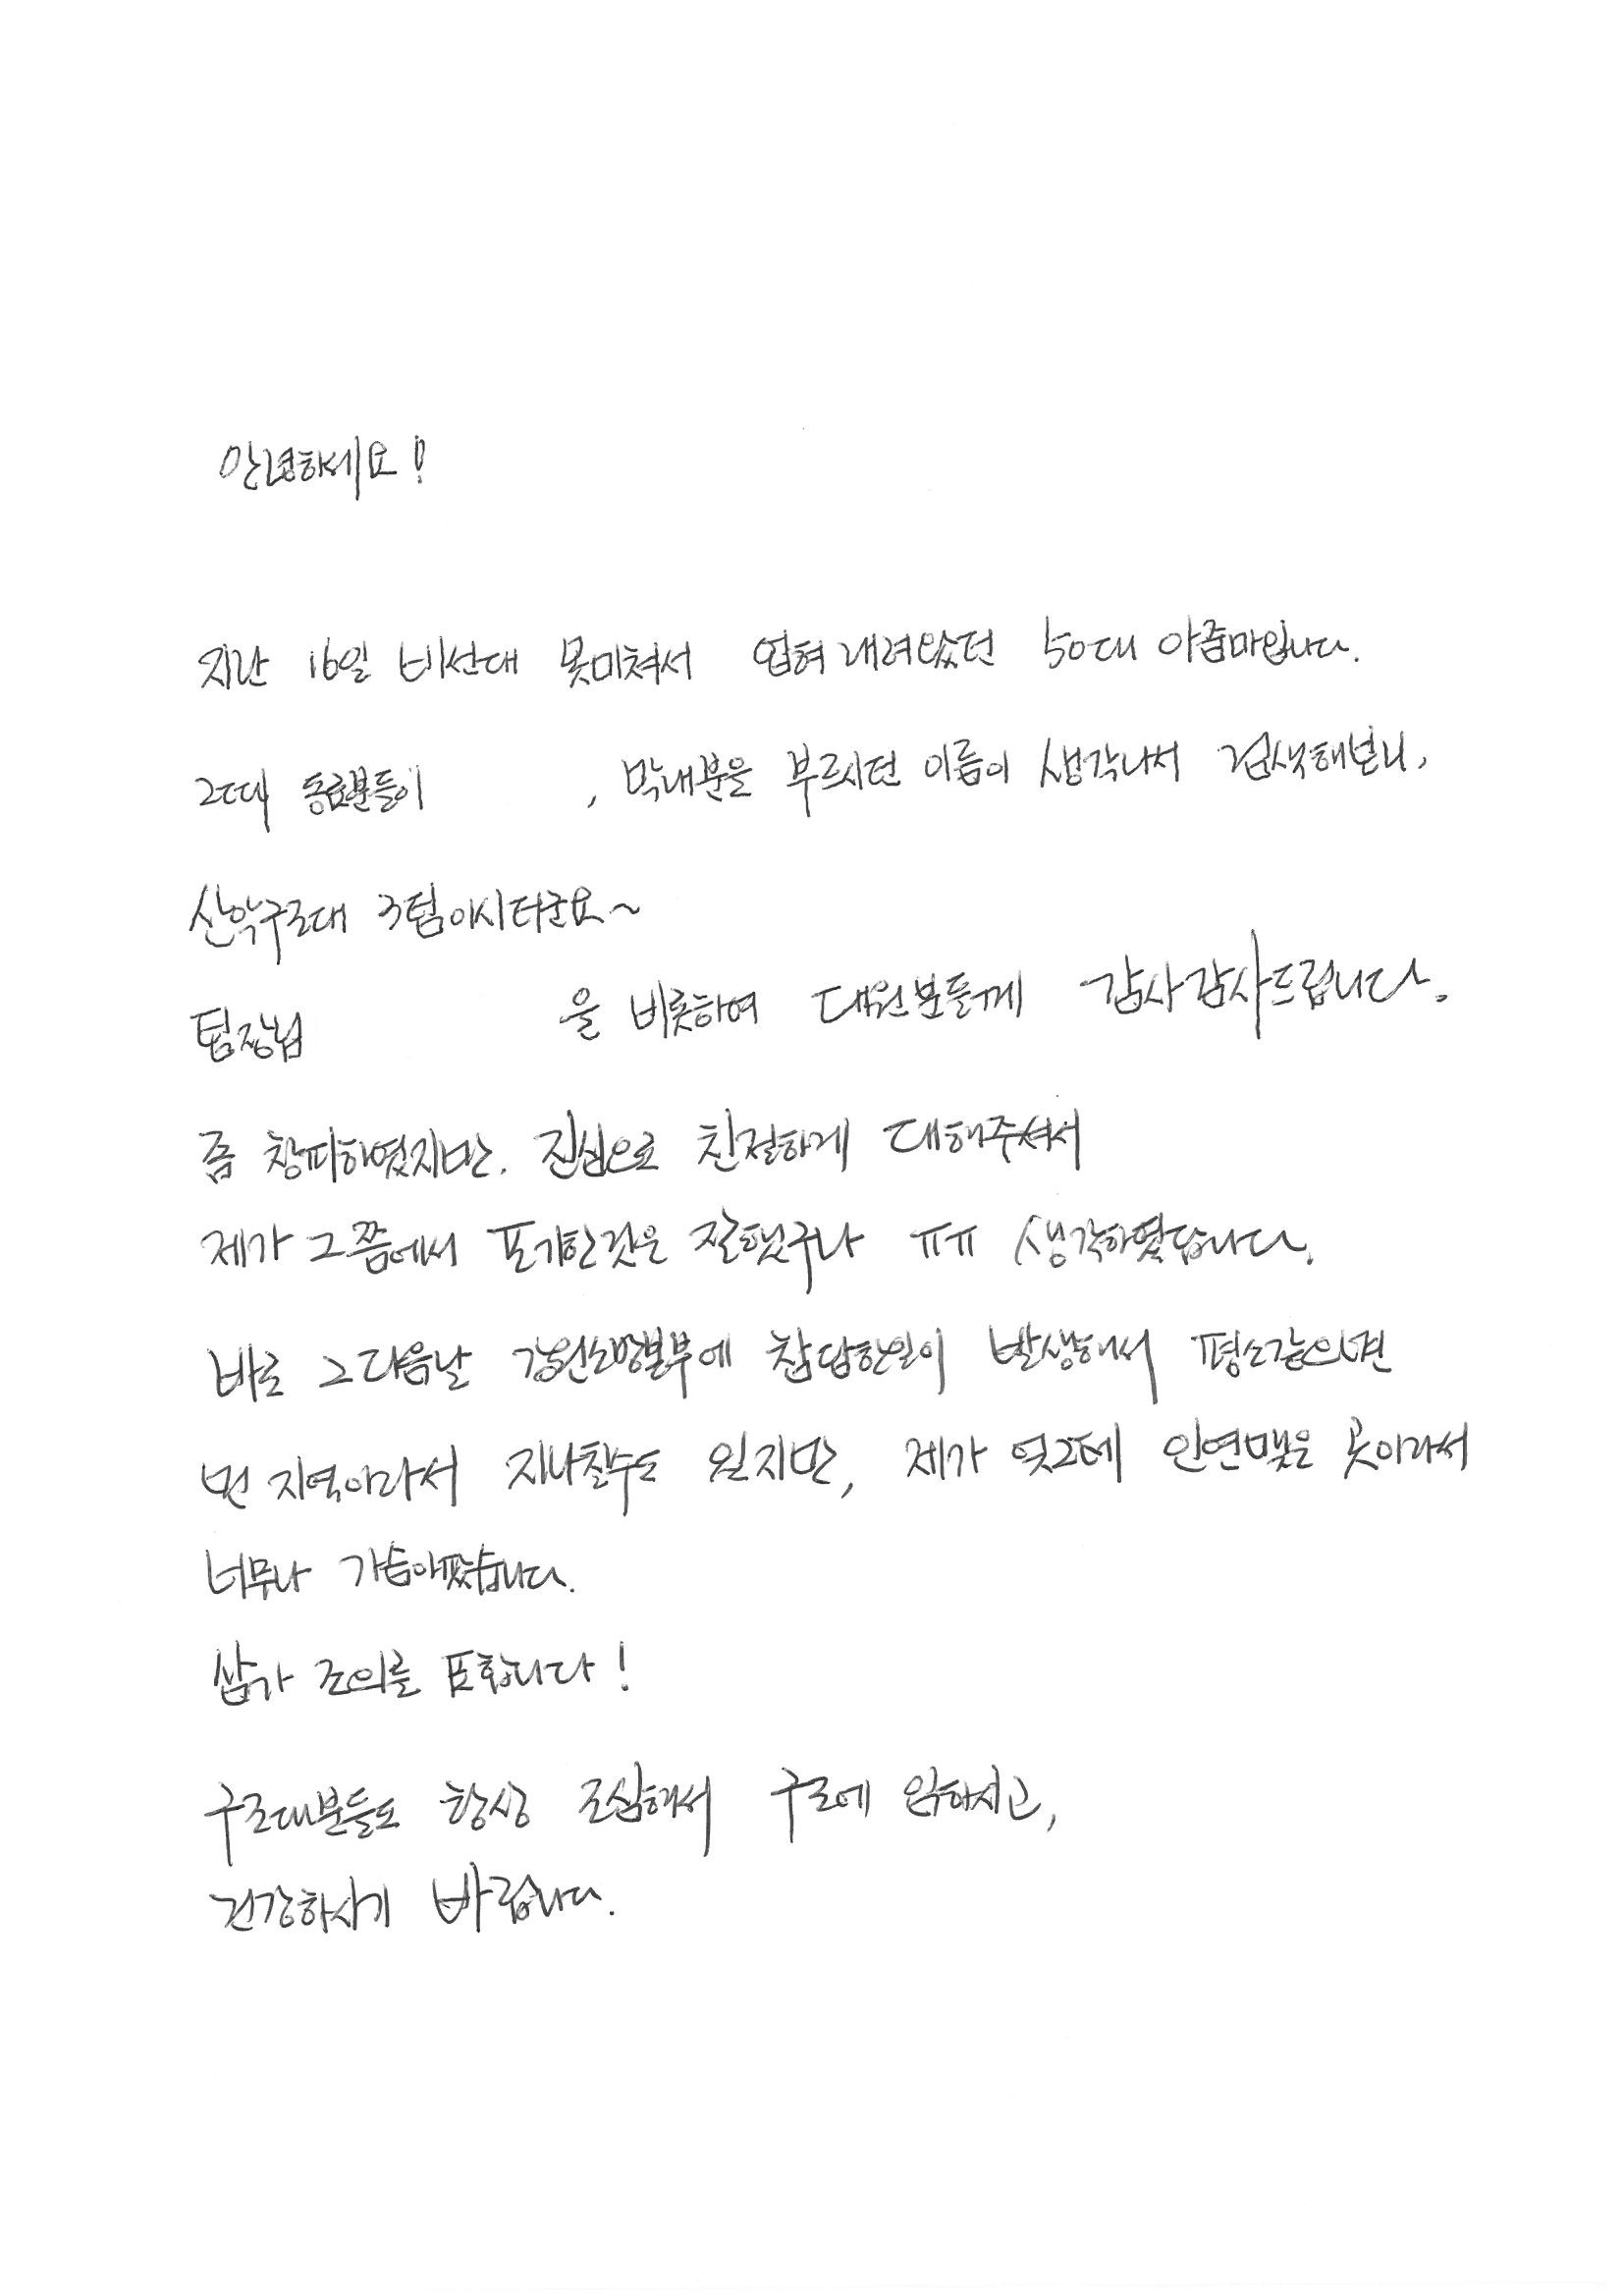 안녕하세요!
지난 16일 비선대 못미쳐서 업혀내려왔던 50대 아줌마입니다.
그때 동료분들이 , 막내분을 부르시던 이름이 생각나서 검색해보니,
산악구조대 3팀이시더군요~
팀장님 을 비롯하여 대원분들께 감사감사드립니다.
좀 창피하였지만. 진심으로 친절하게 대해주셔서
제가 그쯤에서 포기한것은 잘했구나 ㅠㅠ 생각하였답니다.
바로 그다음날 강원소방본부에 참담한일이 발생해서 평소같으면
먼 지역이라서 지나칠수도 있지만, 제가 엊그제 인연맺은 곳이라서
너무나 가슴아팠습니다.
삼가 조의를 표합니다!
구조대분들도 항상 조심해서 구조에 임하시고,
건강하시기 바랍니다.